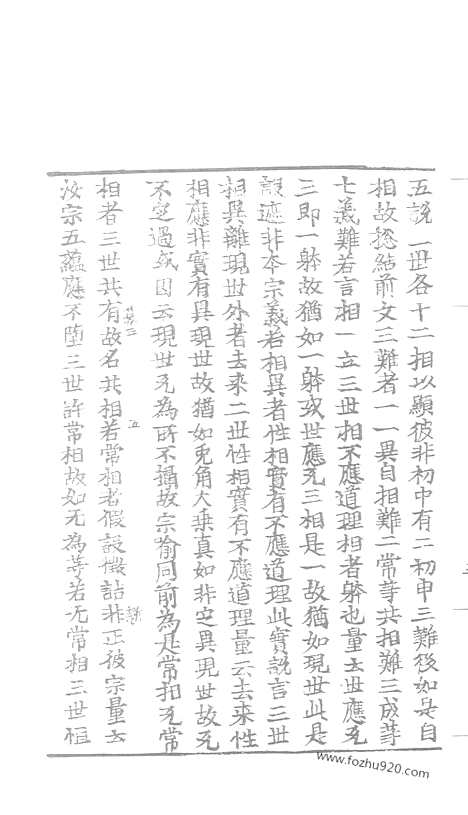 五說一世各十二相以顯彼非初中有二初申三難後如是自
相故捴結前文三難者一一異自相難二常等共相難三成等
七義難若言相一立三世相不應道理相者躰也量云世應无
三即一躰故猶如一躰或世應无三相是一故猶如現世此是
設遮非本宗義若相異者性相實有不應道理此實說言三世
相異離現世外者去來二世性相實有不應道理量云去來性
相應非實有異現世故猶如兎角大乗真如非定異現世故无
不定過或因云現世无為所不攝故宗喻同前為是常相无常
相者三世共有故名共相若常相者假設徴詰非正彼宗量云
汝宗五蘊應不墮三世許常相故如无為等若无常相三世恒
五
www.fozhu920.com